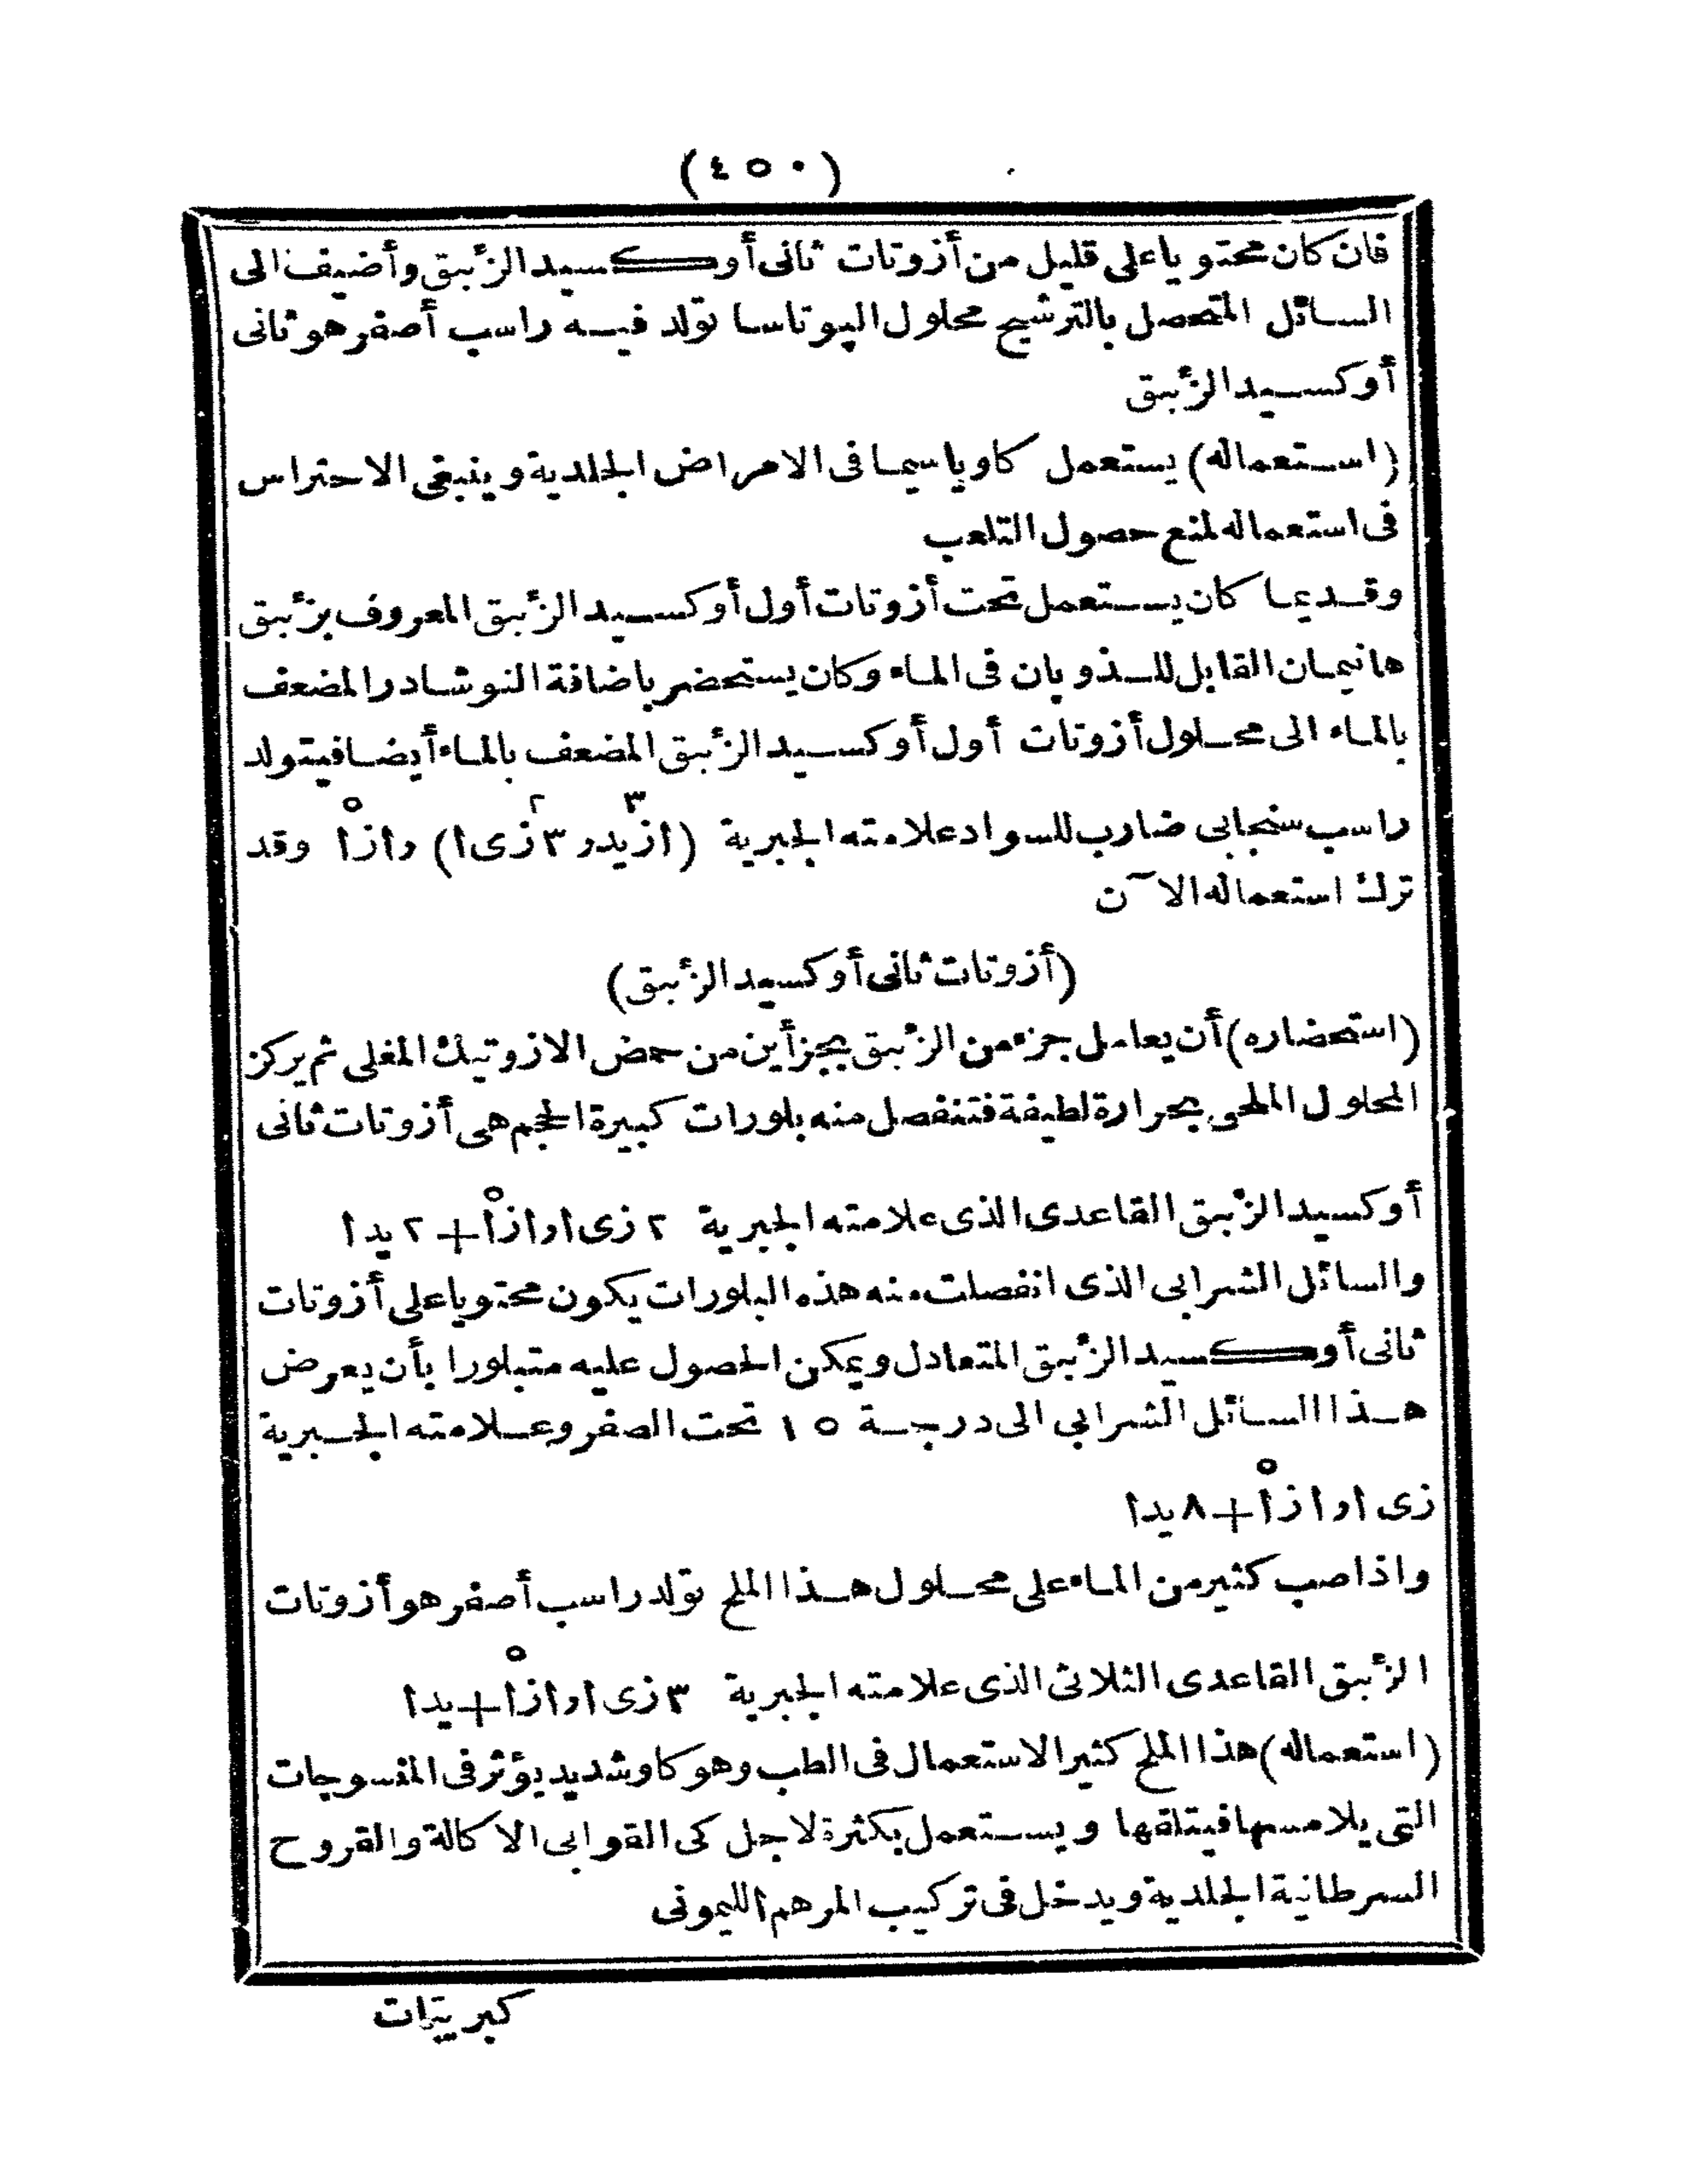 (٤٥٠)
فان كان محتويا على قليل من أزوتات ثانى أوكسيد الزئبق وأضيف الى
السائل المتحصل بالترشيح محلول البوتاسا تولد فيه راسب أصفر هو ثانى
أوكسيد الزئبق
(استعماله) يستعمل كاويا سيما فى الامراض الجلدية وينبغى الاحتراس
فى استعماله لمنع حصول التلعب
وقديما كان يستعمل تحت أزوتات أول أوكسيد الزئبق المعروف بزئبق
هانيمان القابل للذوبان فى الماء وكان يستحضر باضافة النوشادر المضعف
بالماء الى محلول أزوتات أول أوكسيد الزئبق المضعف بالماء أيضا فيتولد
راسب سنجابى ضارب للسواد علامته الجبرية (ازيد٣ر ٣زى٢ا) رازا٥ وقد
ترك استعماله الآن
(أزوتات ثانى أوكسيد الزئبق)
(استحضاره) أن يعامل جزء من الزئبق بجزأين من حمض الازوتيك المغلى ثم يركز
المحلول الملحى بحرارة لطيفة فتنفصل منه بلورات كبيرة الحجم هى أزوتات ثانى
أوكسيد الزئبق القاعدى الذى علامته الجبرية ٢ زى ا ر ازا٥ + ٢ يدا
والسائل الشرابى الذى انفصلت منه هذه البلورات يكون محتويا على أزوتات
ثانى أوكسيد الزئبق المتعادل ويمكن الحصول عليه متبلورا بأن يعرض
هذا السائل الشرابي الى درجة ١٥ تحت الصفر وعلامته الجبرية
زى ا ر ازا٥ + ٨ يدا
واذا صب كثير من الماء على محلول هذا الملح تولد راسب أصفر هو أزوتات
الزئبق القاعدى الثلاثى الذى علامته الجبرية ٣ زى ا ر ازا٥ + يدا
(استعماله) هذا الملح كثير الاستعمال فى الطب وهو كاو شديد يؤثر فى المنسوجات
التى يلامسها فيتلفها ويستعمل بكثرة لاجل كى القوابى الاكالة والقروح
السرطانية الجلدية ويدخل فى تركيب المرهم الليمونى
كبريتات